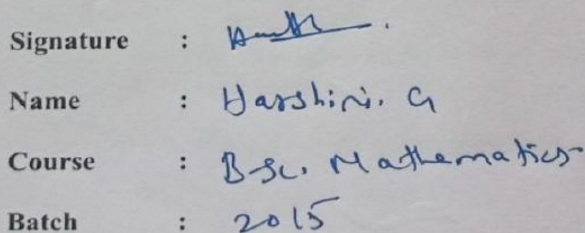 Signature :
Name : Harshini. G
Course : B.Sc. Mathematics
Batch : 2015